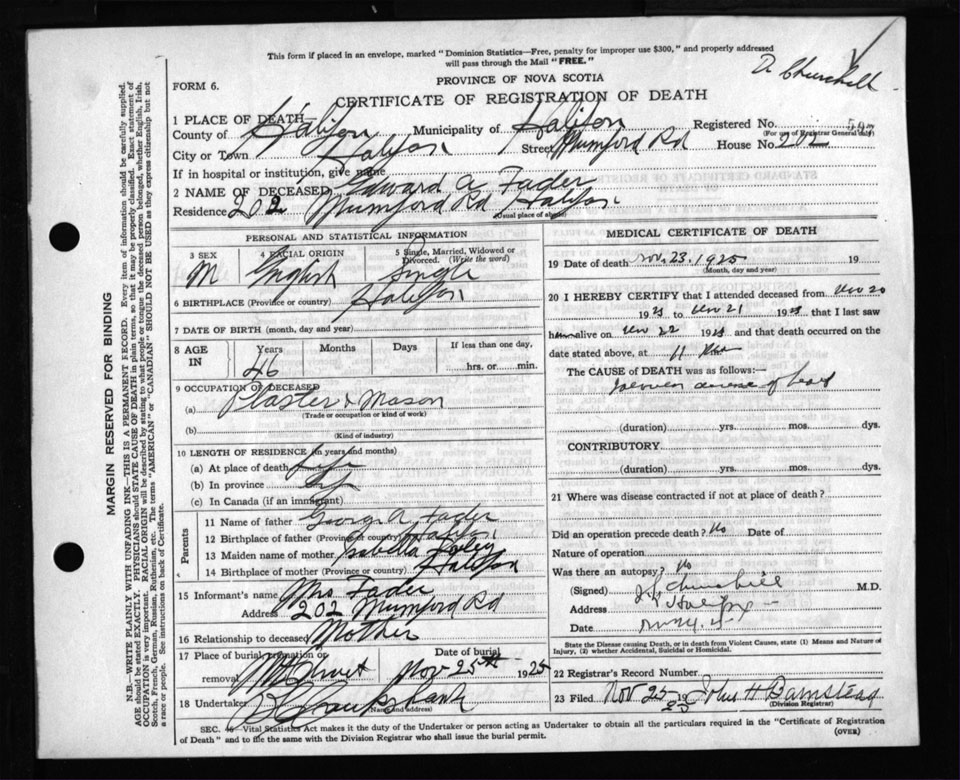 This form if placed in an envelope, marked "Dominion Statistics—Free, penalty for improper use $300," and properly addressed
will pass through the Mail "FREE."
D. Churchill
FORM 6.
PROVINCE OF NOVA SCOTIA
CERTIFICATE OF REGISTRATION OF DEATH
1 PLACE OF DEATH
County of Halifax Municipality of Halifax Registered No.
(For use of Registrar General only)
City or Town Halifax Street Mumford Rd House No. 202
If in hospital or institution, give name
2 NAME OF DECEASED Edward A Fader
Residence 202 Mumford Rd Halifax
(Usual place of abode)
PERSONAL AND STATISTICAL INFORMATION
3 SEX 4 RACIAL ORIGIN 5 Single, Married, Widowed or Divorced. (Write the word)
M English Single
6 BIRTHPLACE (Province or country) Halifax
7 DATE OF BIRTH (month, day and year)
8 AGE IN Years Months Days If less than one day,
46 hrs. or min.
9 OCCUPATION OF DECEASED
(a) Plaster & Mason
(Trade or occupation or kind of work)
(b)
(Kind of industry)
10 LENGTH OF RESIDENCE (in years and months)
(a) At place of death Life
(b) In province Life
(c) In Canada (if an immigrant)
Parents
11 Name of father George A. Fader
12 Birthplace of father (Province or country) Halifax
13 Maiden name of mother Isabella
14 Birthplace of mother (Province or country) Halifax
15 Informant's name Mrs Fader
Address 202 Mumford Rd
16 Relationship to deceased Mother
17 Place of burial, cremation or removal Date of burial
Mt Olivet Nov 25th 1925
18 Undertaker Cruikshank
(Name and address)
MEDICAL CERTIFICATE OF DEATH
19 Date of death Nov. 23. 1925 19
(Month, day and year)
20 I HEREBY CERTIFY that I attended deceased from Nov 20
1925 to Nov 21 1925 that I last saw
him alive on Nov 22 1925 and that death occurred on the
date stated above, at 11 m.
The CAUSE of DEATH was as follows:—
(duration) yrs. mos. dys.
CONTRIBUTORY
(duration) yrs. mos. dys.
21 Where was disease contracted if not at place of death?
Did an operation precede death? No Date of
Nature of operation
Was there an autopsy? No
(Signed) Churchill M.D.
Address Halifax
Date
State the Disease causing Death, or in death from Violent Causes, state (1) Means and Nature of
Injury, (2) whether Accidental, Suicidal or Homicidal.
22 Registrar's Record Number
23 Filed Nov 25 1925 John H Barnstead
(Division Registrar)
SEC. 46—Vital Statistics Act makes it the duty of the Undertaker or person acting as Undertaker to obtain all the particulars required in the "Certificate of Registration
of Death" and to file the same with the Division Registrar who shall issue the burial permit.
(OVER)
MARGIN RESERVED FOR BINDING
N.B.—WRITE PLAINLY WITH UNFADING INK—THIS IS A PERMANENT RECORD. Every item of information should be carefully supplied.
AGE should be stated EXACTLY. PHYSICIANS should STATE CAUSE OF DEATH in plain terms, so that it may be properly classified. Exact statement of
OCCUPATION is very important. RACIAL ORIGIN will be described by stating to what people or tongue the deceased person belonged, whether English, Irish,
Scotch, French, German, Russian, Ruthenian, etc. The terms "AMERICAN" or "CANADIAN" SHOULD NOT BE USED as they express citizenship but not
a race or people. See instructions on back of Certificate.